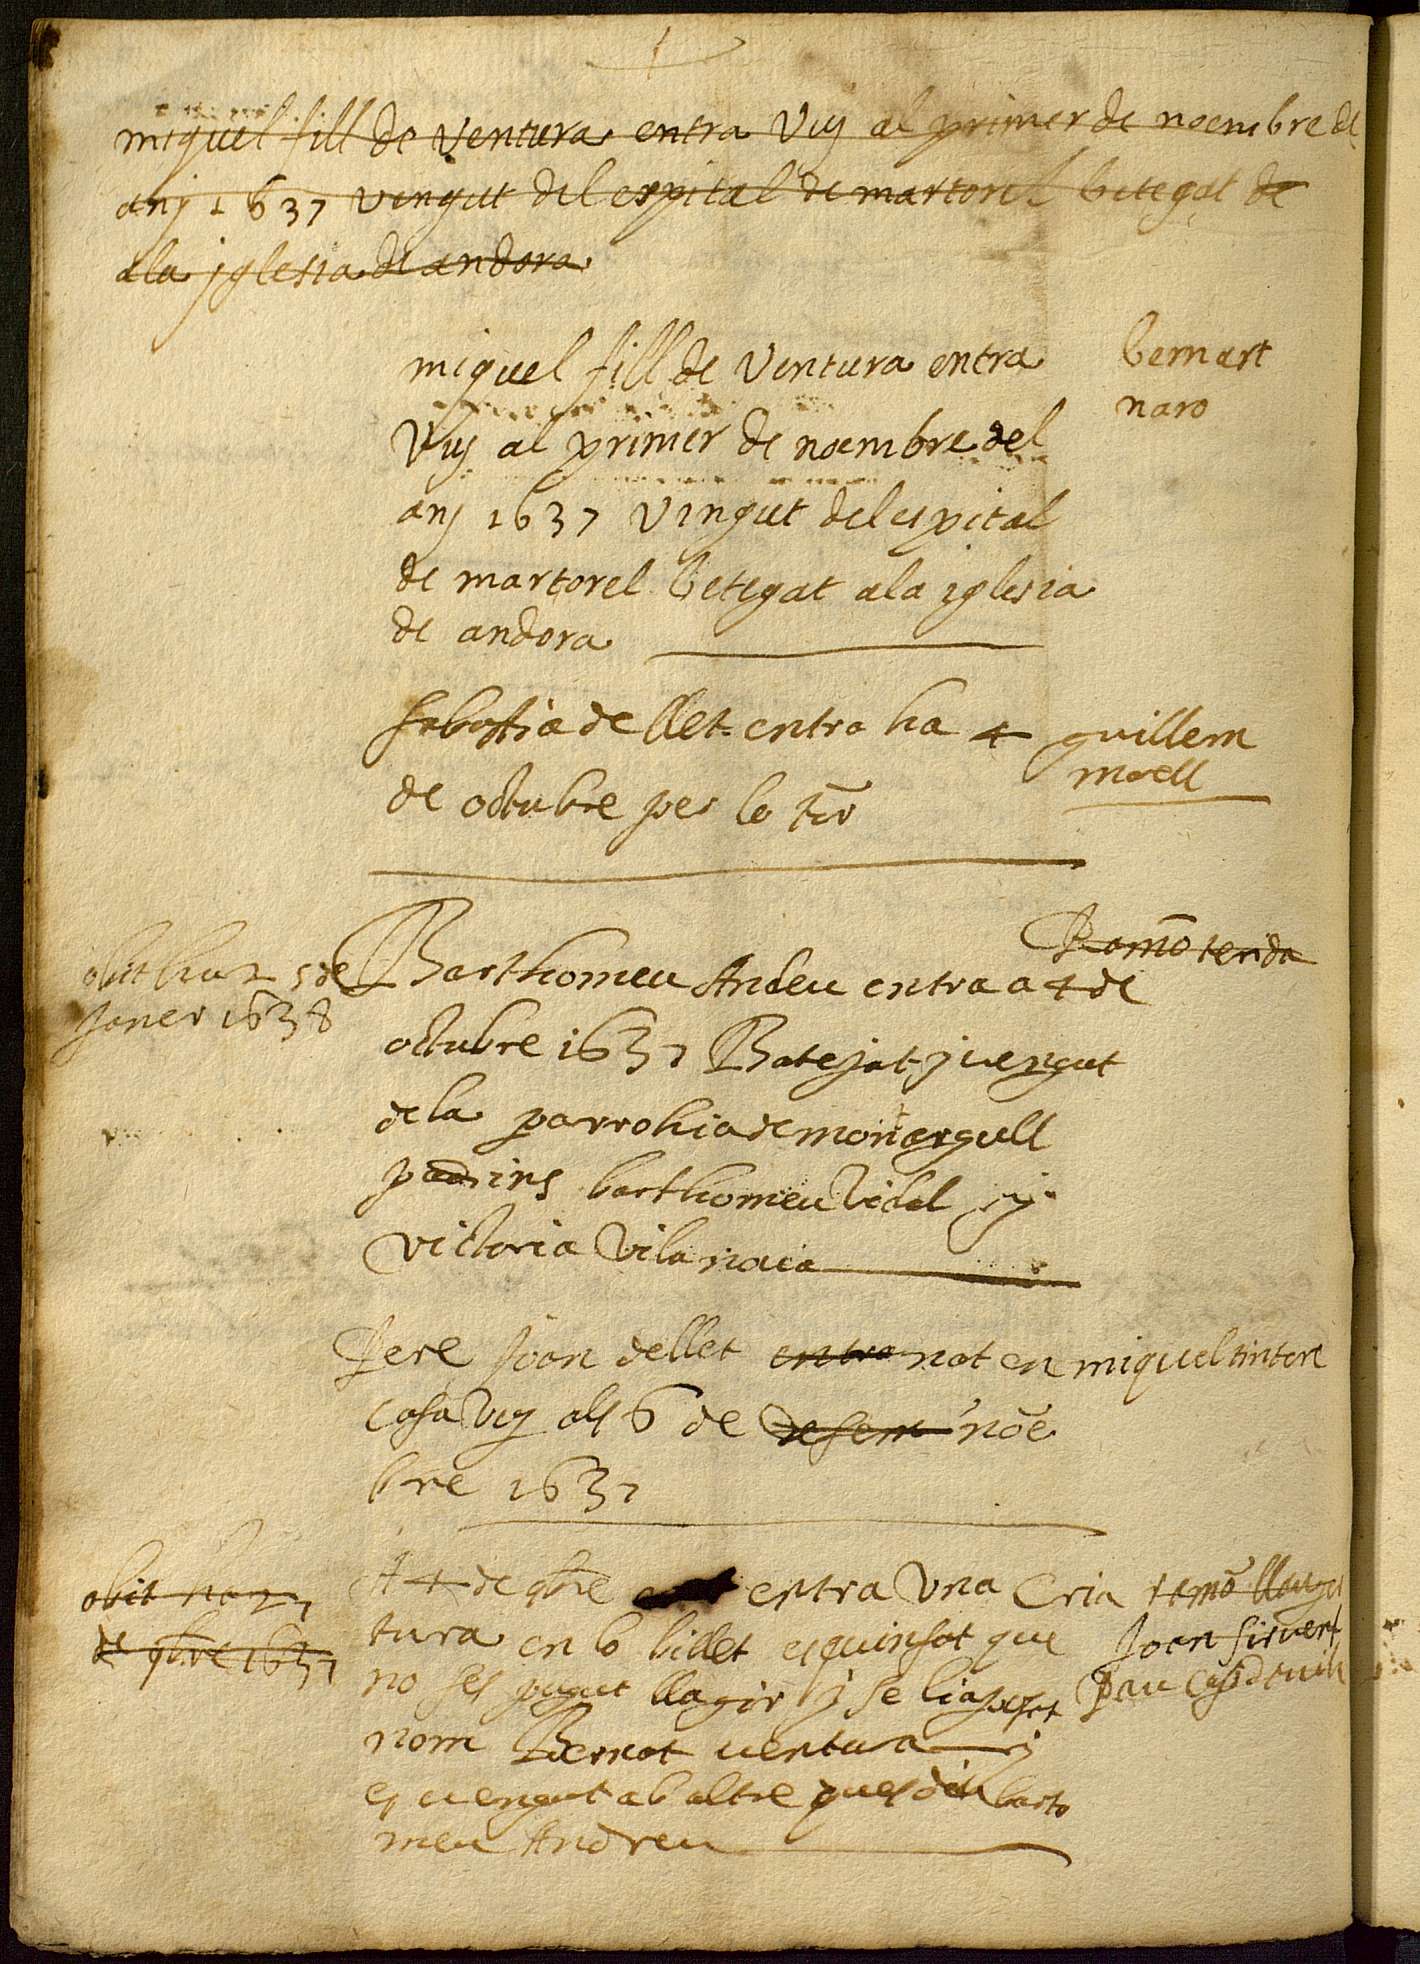 miquel fill de ventura entra vuy al primer de noembre de
any 1637 vengut del espital de martorel betegat de
ala iglesia de andora
miquel fill de ventura entra
vuy al primer de noembre del
any 1637 vingut del espital
de martorel betegat ala iglesia
de andora
bernart
naro
sebastia de llet entra ha 4
de octubre per lo
guillem
moell
obit ha 25 de
Janer 1638
Ramō
Barthomeu Andeu entra a 4 de
octubre 1637 Batejat y vengut
de la parrohia de
barthomeu Vidal y
victoria Vilanova
Pere Joan dellet entra nat en
casa vuy als 6 de desem nōe
bre 1637
miquel tintore
obit ha 27
de 1637
A 4 de entra una Cria
tura en lo billet esquinsat que
no ses pugut llagir y se li a posat
nom Bernat ventura y
es vengut ab altre ques diu barto
meu Andreu
ramō
Joan sirvent
Pau